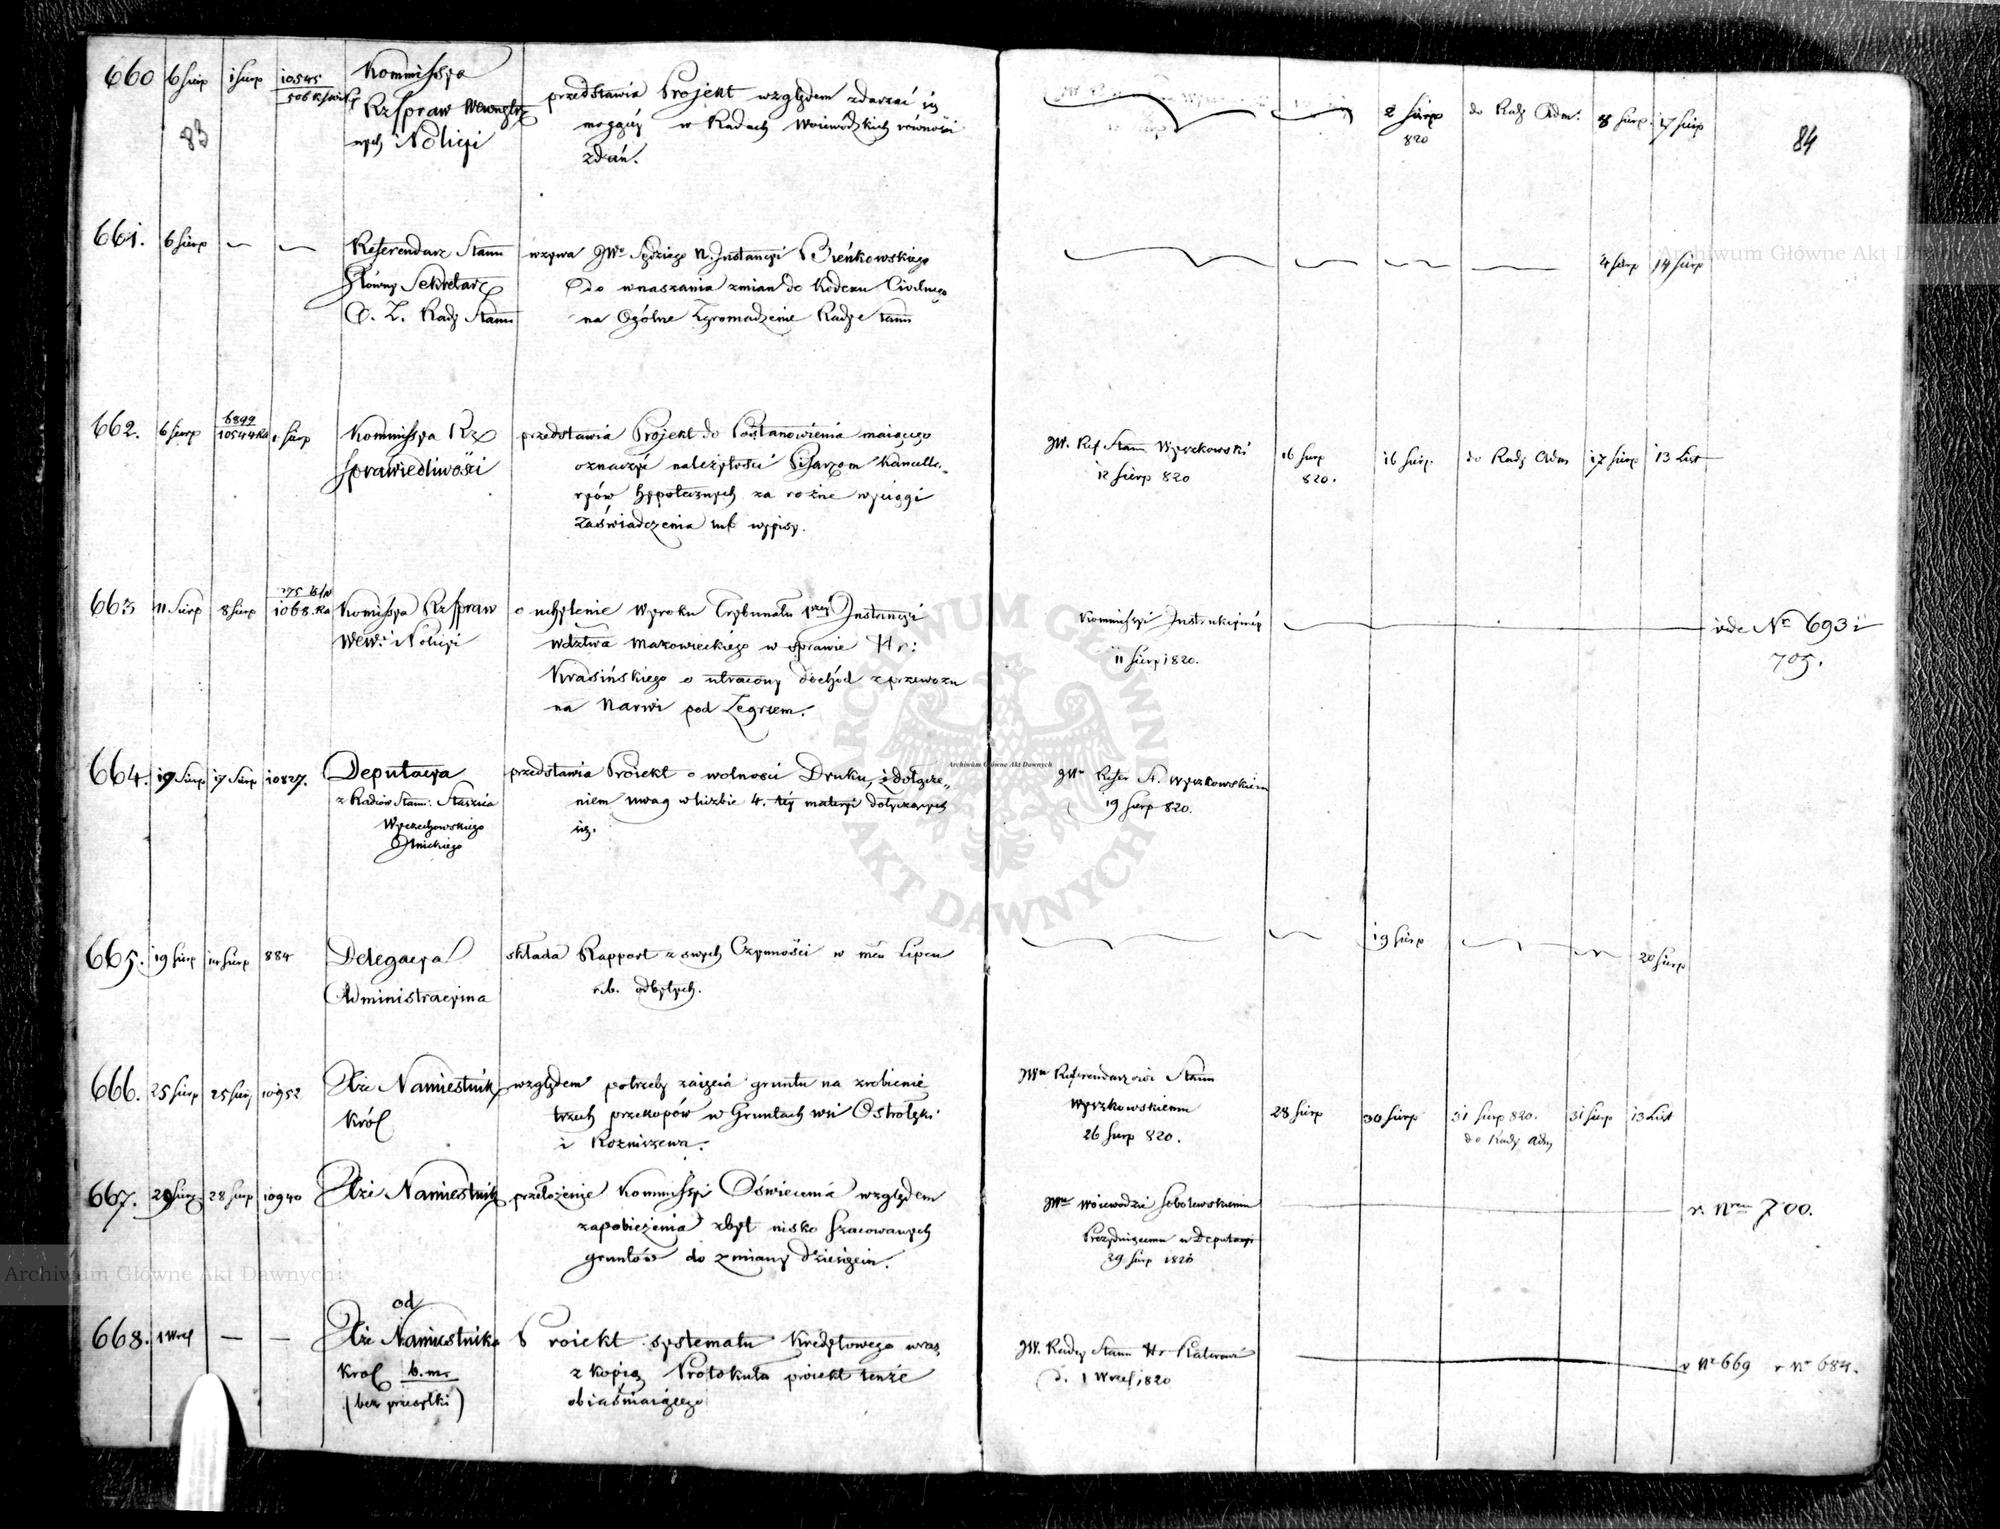 660 6 Sierp 1 Sierp 10545 Kommissya
Rz Spraw Wewnętrz
nych i Policyi
przedstawia Projekt względem zdarzać się
mogącej w Radach Woiewodzkich równości
zdań.
2 Sierp 820 do Rady Adm. 8 Sierp. 17 Sierp
83
84
661. 6 Sierp Referendarz Stanu
Główny Sekretarz
Rady Stanu
wzywa JWo Sędziego Instancyi Bieńkowskiego
do wnaszania zmian do Kodexu Civilnego
na Ogólne Zgromadzenie Rady Stanu
4 Sierp 14 Sierp
662. 6 Sierp 6899 10544 Ra 1 Sierp Kommissya Rz
Sprawiedliwości
przedstawia Projekt do Postanowienia maiącego
oznaczyć należytości Pisarzom Kancella-
ryów hypotecznych za rożne wyciągi
zaświadczenia lub wypisy.
JW. Ref Stanu Wyczkowski
12 Sierp 820
16 Sierp 820. 16 Sierp. do Rady Adm 17 Sierp 13 List
663 11 Sierp 8 Sierp 1068. Ra Komissya Rz Spraw
Wew: i Policyi
o uchylenie Wyroku Trybunału Instancyi
Wdztwa Mazowieckiego w sprawie Hr:
Krasińskiego o utracony dochód z przewozu
na Narwi pod Zegrzem.
Kommissyi Instrukcyinéy
11 Sierp 1820.
vide No 693 i
705.
664. 19 Sierp 17 Sierp 10827. Deputacya
z Radców Stanu: Staszica
Wyczechowskiego
przedstawia Proiekt o wolności Druku, z dołącze-
niem uwag w liczbie 4. téy materyi dotyczących
się.
Refer St. Wyczkowskiem
19 Sierp 820.
665. 19 Sierp 14 Sierp 884 Delegacya
Administracyina
składa Rapport z swych Czynności w mcu Lipcu
r.b. odbytych.
19 Sierp 20 Sierp
666. 25 Sierp 25 Sierp 10952 Xże Namiestnik
Król
względem potrzeby zaięcia gruntu na zrobienie
trzech przekopów w Gruntach wsi Ostrołęki
i Rozniszewa.
JWu Referendarzowi Stanu
Wyczkowskiemu
26 Sierp 820.
28 Sierp 30 Sierp 31 Sierp 820. do Rady Adm 31 Sierp 13 List
667. 29 Sierp. 28 Sierp 10940 Xże Namiestnik
przełożenie Kommissyi Oświecenia względem
zapobieżenia zbyt nisko szacowanych
gruntów do zmiany dziesięcin.
JWu Woiewodzie Sobolewskiemu
Prezyduiącemu w Deputacyi
29 Sierp 1820
v. Nrem 700.
668. 1 Wrześ od
Xże Namiestnika
Król b.m.
(bez przesyłki)
Proiekt systematu Kredytowego wraz
z kopią Protokułu proiekt tenże
obiaśniaiącego
JW. Radcy Stanu Hr Platerowi
d. 1 Wrześ 1820
v No 669 v No 684.
ARCHIWUM GŁÓWNE
AKT DAWNYCH
Archiwum Główne Akt Dawnych
Archiwum Główne Akt Dawnych
Archiwum Główne Akt Dawnych